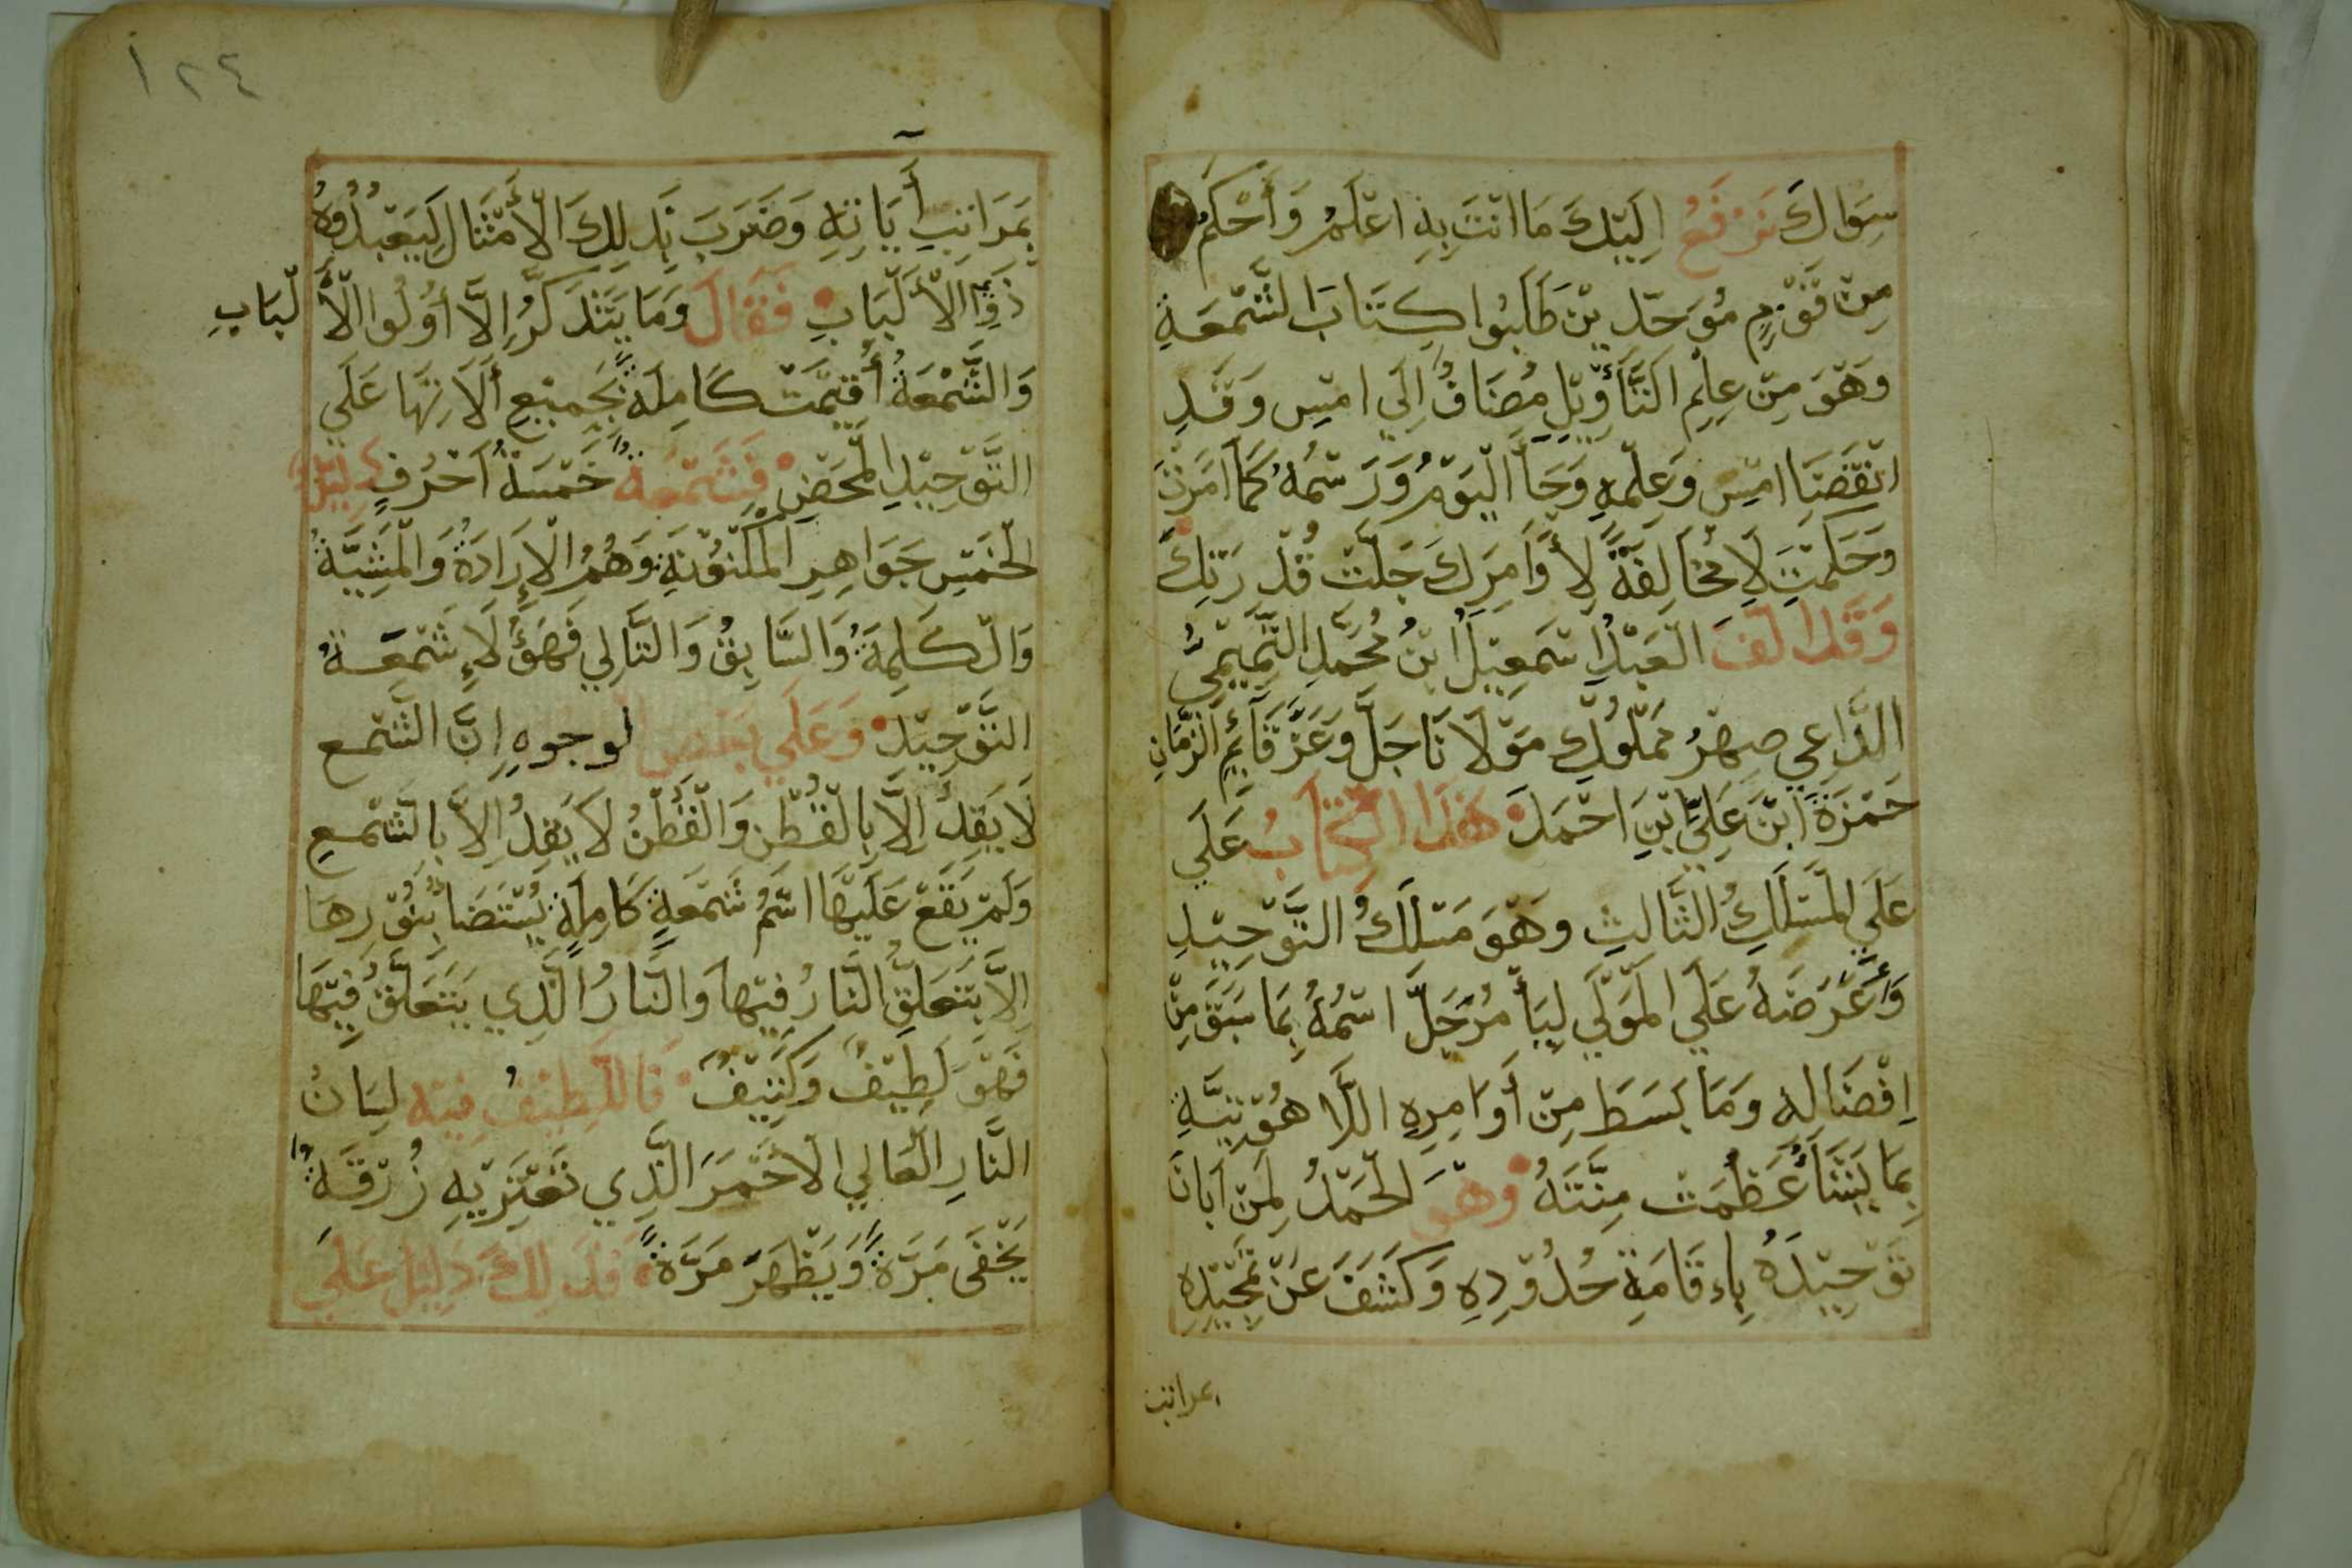 سِوَاكَ نَرْفَعُ اِلَيْكَ مَا انْتَ بِهِ اعْلَمُ وَأَحْكَمُ
مِنْ قَوْمٍ مُوَحِّدِيْنَ طَلَبُوا كِتَابَ الشَّمْعَةِ
وَهْوَ مِنْ عِلْمِ التَّأْوِيْلِ مُضَافٌ اِلَي امْسِ وَقَدِ
انْقَضَا امْسِ وَعِلْمِهِ وَجَاَ الْيَوْمُ وَرَسْمُهُ كَمَا اَمَرْتَ
وَحَكَمْتَ لَا مُخَالِفَةً لِأَوَامِرِكَ جَلَّتْ قُدْرَتِكَ
وَقَدْ اَلَّفَ الْعَبْدُ اِسْمَعِيْلُ ابْنُ مُحَمَّدِ التَّمِيْمِيُّ
الدَّاعِي صِهْرُ مَمْلُوْكِ مَوْلَانَا جَلَّ وَعَزَّ قَآئِمِ الزَّمَانِ
حَمْزَةَ ابْنَ عَلِيِّ ابْنِ احْمَدَ هَذَا الْكِتَابُ عَلَي
عَلَي الْمَسْلَكِ الثَّالِثِ وَهْوَ مَسْلَكُ التَّوْحِيْدِ
وَأَعْرَضَهُ عَلَي الْمَوْلَي لِيَأْمُرَ جَلَّ اسْمُهُ بِمَا سَبَقَ مِنْ
اِفْضَالِهِ وَمَا بَسَطَ مِنْ أَوَامِرِهِ اللَّاهُوْتِيَّةِ
بِمَا يَشَأْ عَظُمَتْ مِنَّتَهُ وَهْوَ الْحَمْدُ لِمَنْ اَبَانَ
تَوْحِيْدَهُ بِاِءقَامَةِ حُدُوْدِهِ وَكَشَفَ عَنْ تَمْجِيْدِهِ
بمراتب
١٢٤
بِمَرَاتِبِ أَيَاتِهِ وَضَرَبَ بِذَلِكَ الْأَمْثَالَ لِيَعْبُدُوهُ
ذَوِوا الْأَلْبَابِ فَقَالَ وَمَا يَتَذَكَّرُ اِلَّا أُوْلُوا الْأَلْبَابِ
وَالشَّمْعَةُ أُقِيْمَتْ كَامِلَةً بِجَمِيْعِ أَلَاتِهَا عَلَي
التَّوْحِيْدِ الْمَحْضِ فَشَمْعَةٌ خَمْسَةُ اَحْرُفٍ دَلِيْلٌ
الْخَمْسِ جَوَاهِرِ الْمَكْنُوْنَةِ وَهُمُ الْاِرَادَةُ وَالْمَشِيَّةُ
وَالْكَلِمَةُ وَالسَّابِقُ وَالتَّالِي فَهَؤُلَاءِ شَمْعَةُ
التَّوْحِيْدِ وَعَلَي بَعْضِ الوجوهِ اِنَّ الشَّمْعَ
لَا يَقِدُ اِلَّا بِالْقُطْنِ وَالْقُطْنُ لَا يَقِدُ اِلَّا بِالشَّمْعِ
وَلَمْ يَقَعْ عَلَيْهَا اسْمُ شَمْعَةٍ كَامِلَةٍ يُسْتَضَا بِنُوْرِهَا
اِلَّا بِتَعَلُّقِ النَّارُ فِيْهَا وَالنَّارُ الَّذِي يَتَعَلَّقُ فِيْهَا
فَهْوَ لَطِيْفٌ وَكَثِيْفٌ فَاللَّطِيْفُ فِيْهِ لِسَانُ
النَّارِ الْعَالِي الْاَحْمَرَ الَّذِي تَعْتَرِيْهِ زُرْقَةٌ
يَخْفَى مَرَّةً وَيَظْهَرُ مَرَّةً فَذَلِكَ دَلِيْلٌ عَلَي